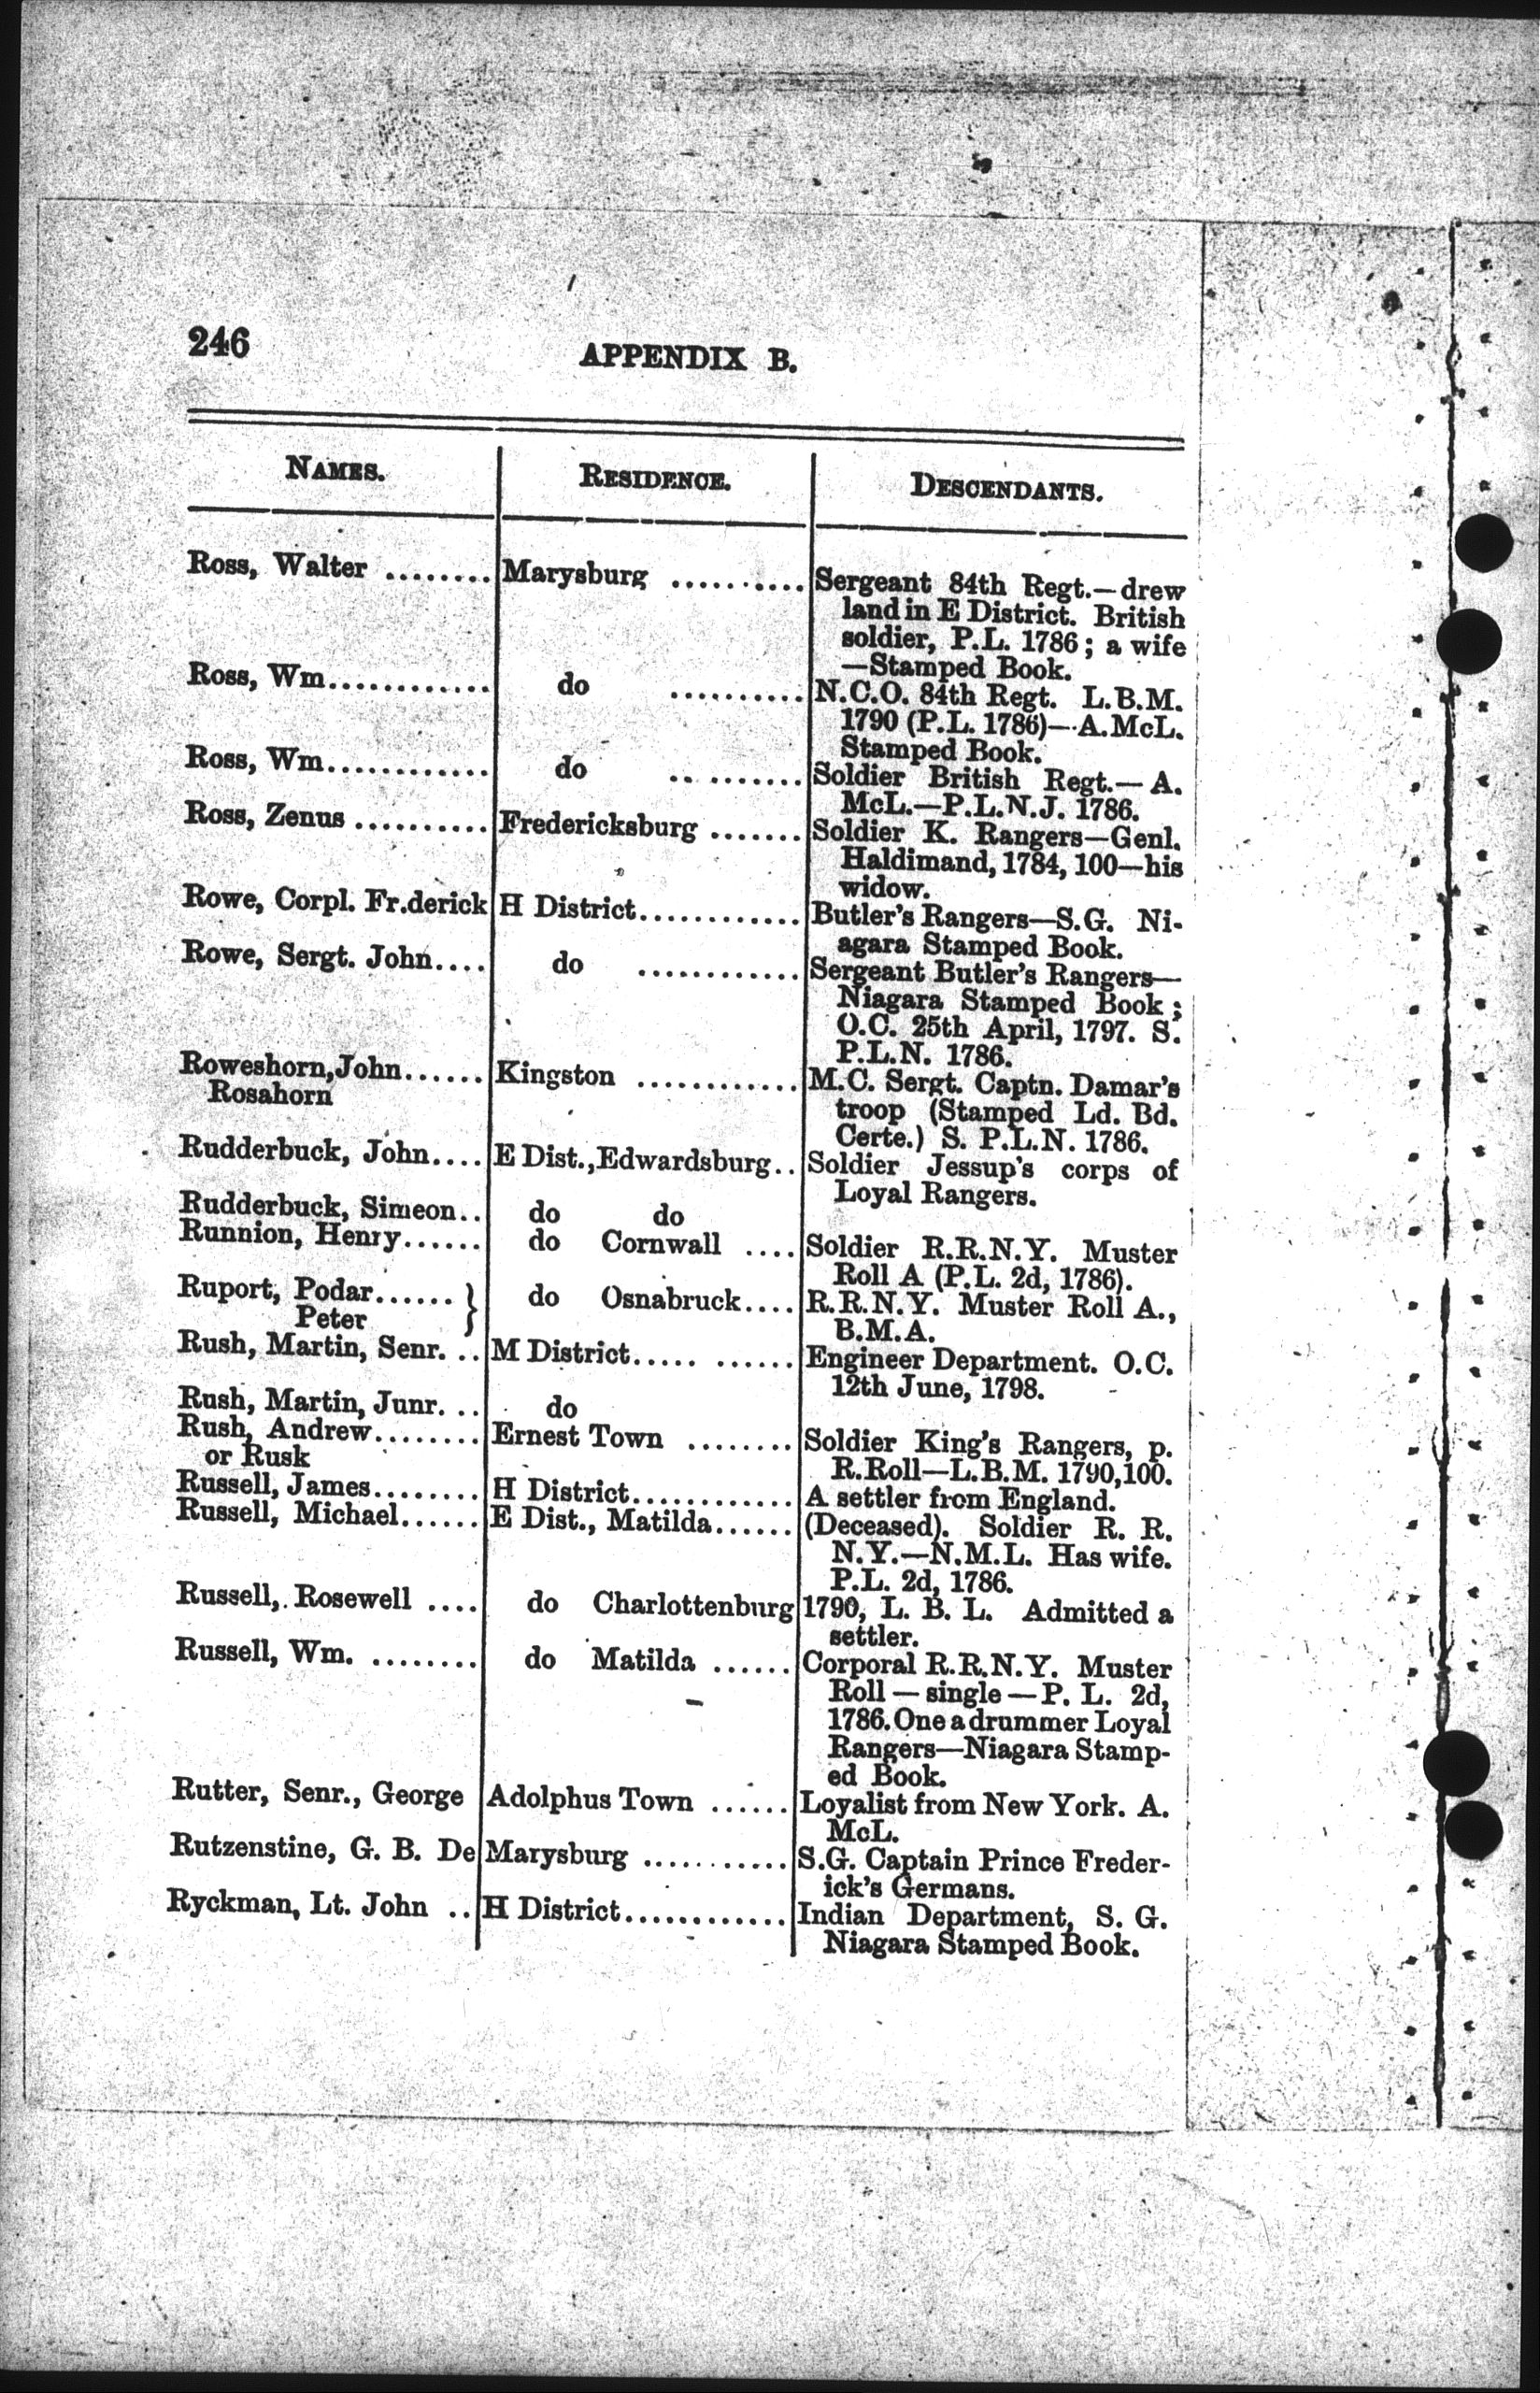 246
APPENDIX B.
NAMES. RESIDENCE. DESCENDANTS.
Ross, Walter ........ Marysburg .......... Sergeant 84th Regt.—drew
land in E District. British
soldier, P.L. 1786; a wife
—Stamped Book.
Ross, Wm............. do .......... N.C.O. 84th Regt. L.B.M.
1790 (P.L. 1786)—A.McL.
Stamped Book.
Ross, Wm............. do .. ....... Soldier British Regt.—A.
McL.—P.L.N.J. 1786.
Ross, Zenus .......... Fredericksburg ....... Soldier K. Rangers—Genl.
Haldimand, 1784, 100—his
widow.
Rowe, Corpl. Fr.derick H District............ Butler's Rangers—S.G. Ni-
agara Stamped Book.
Rowe, Sergt. John.... do ............ Sergeant Butler's Rangers—
Niagara Stamped Book;
O.C. 25th April, 1797. S.
P.L.N. 1786.
Roweshorn, John...... Kingston ............ M.C. Sergt. Captn. Damar's
Rosahorn troop (Stamped Ld. Bd.
Certe.) S. P.L.N. 1786.
Rudderbuck, John.... E Dist., Edwardsburg.. Soldier Jessup's corps of
Loyal Rangers.
Rudderbuck, Simeon.. do do
Runnion, Henry...... do Cornwall .... Soldier R.R.N.Y. Muster
Roll A (P.L. 2d, 1786).
Ruport, Podar...... } do Osnabruck.... R.R.N.Y. Muster Roll A.,
Peter B.M.A.
Rush, Martin, Senr. .. M District..... ...... Engineer Department. O.C.
12th June, 1798.
Rush, Martin, Junr. .. do
Rush, Andrew........ Ernest Town ........ Soldier King's Rangers, p.
or Rusk R.Roll—L.B.M. 1790,100.
Russell, James........ H District............ A settler from England.
Russell, Michael...... E Dist., Matilda...... (Deceased). Soldier R. R.
N.Y.—N.M.L. Has wife.
P.L. 2d, 1786.
Russell, Rosewell .... do Charlottenburg 1790, L. B. L. Admitted a
settler.
Russell, Wm. ........ do Matilda ...... Corporal R.R.N.Y. Muster
Roll — single — P. L. 2d,
1786. One a drummer Loyal
Rangers—Niagara Stamp-
ed Book.
Rutter, Senr., George Adolphus Town ...... Loyalist from New York. A.
McL.
Rutzenstine, G. B. De Marysburg ........... S.G. Captain Prince Freder-
ick's Germans.
Ryckman, Lt. John .. H District............ Indian Department, S. G.
Niagara Stamped Book.